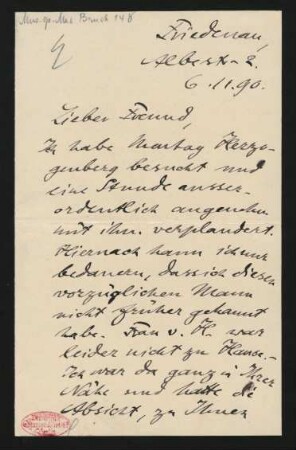 Mus. ep. Max Bruch 148
Friedenau,
Albestr. 2.
6.11.90.
Lieber Freund,
Ich habe Montag Herzo-
genberg besucht und
eine Stunde ausser-
ordentlich angenehm
mit ihm verplaudert.
Hiernach kann ich nur
bedauern, dass ich diesen
vorzüglichen Mann
nicht früher gekannt
habe. Frau v. H. war
leider nicht zu Hause.
Ich war da ganz in Ihrer
Nähe und hatte die
Absicht, zu Ihnen